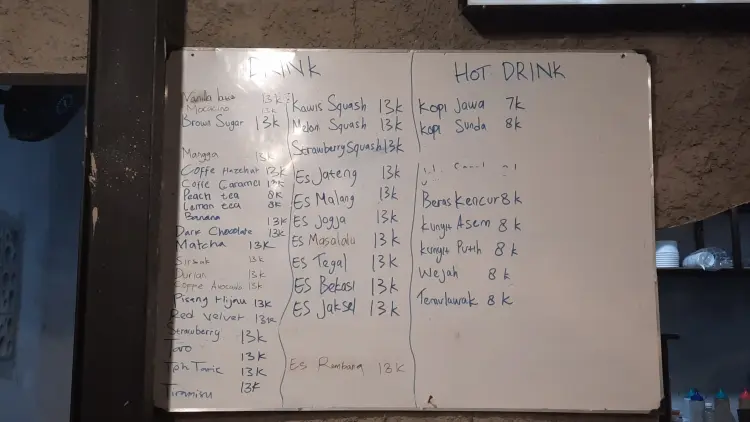 DRINK
Vanilla 13k
Mocacino 13k
Brown Sugar 13k
Mangga 13k
Coffe Hazelnut 13k
Coffe Caramel 13k
Peach tea 8k
Lemon tea 8k
Banana 13k
Dark Chocolate 13k
Matcha 13k
Sirsak 13k
Durian 13k
Coffe Avocado 13k
Pisang Hijau 13k
Red Velvet 13k
Strawberry 13k
Taro 13k
Teh Tarik 13k
Tiramisu 13k
Kawis Squash 13k
Melon Squash 13k
Strawberry Squash 13k
Es Jateng 13k
Es Malang 13k
Es Jogja 13k
Es Masalalu 13k
Es Tegal 13k
ES Bekasi 13k
ES Jaksel 13k
Es Rembang 13k
HOT DRINK
Kopi Jawa 7k
Kopi Sunda 8k
Beras Kencur 8k
Kunyit Asem 8k
Kunyit Putih 8k
Wejah 8k
Temulawak 8k